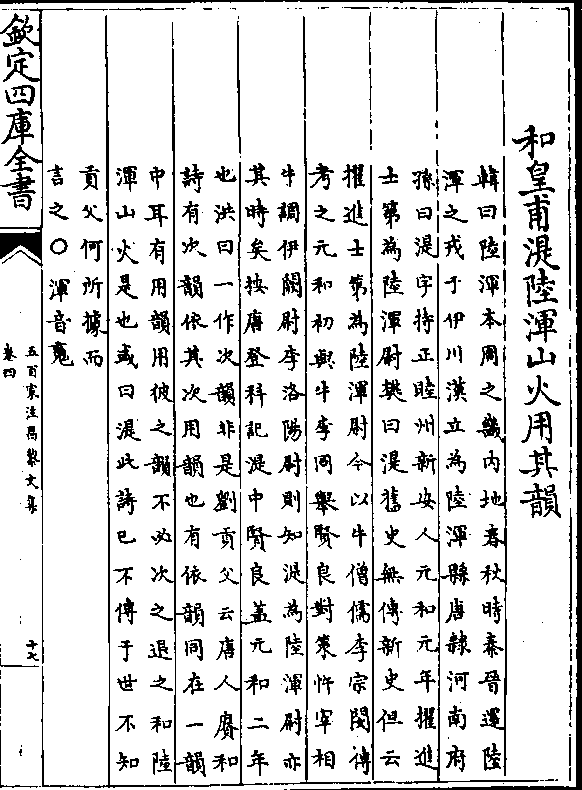 和皇甫湜陸渾山火用其韻
韓曰陸渾本周之畿内地春秋時秦晉遷陸
渾之戎于伊川漢立為陸渾縣唐隸河南府
孫曰湜字持正睦州新安人元和元年擢進
士第為陸渾尉樊曰湜舊史無傳新史但云
擢進士第為陸渾尉今以牛僧儒李宗閔傳
考之元和初與牛李同舉賢良對策忤宰相
牛調伊闕尉李洛陽尉則知湜為陸渾尉亦
其時矣按唐登科記湜中賢良盖元和二年
也洪曰一作次韻非是劉貢父云唐人賡和
詩有次韻依其次用韻也有依韻同在一韻
中耳有用韻用彼之韻不必次之退之和陸
渾山火是也或曰湜此詩已不傳于世不知
貢父何所據而
言之○渾音䰟
欽定四庫全書
五百家注昌黎文集
卷四
十七